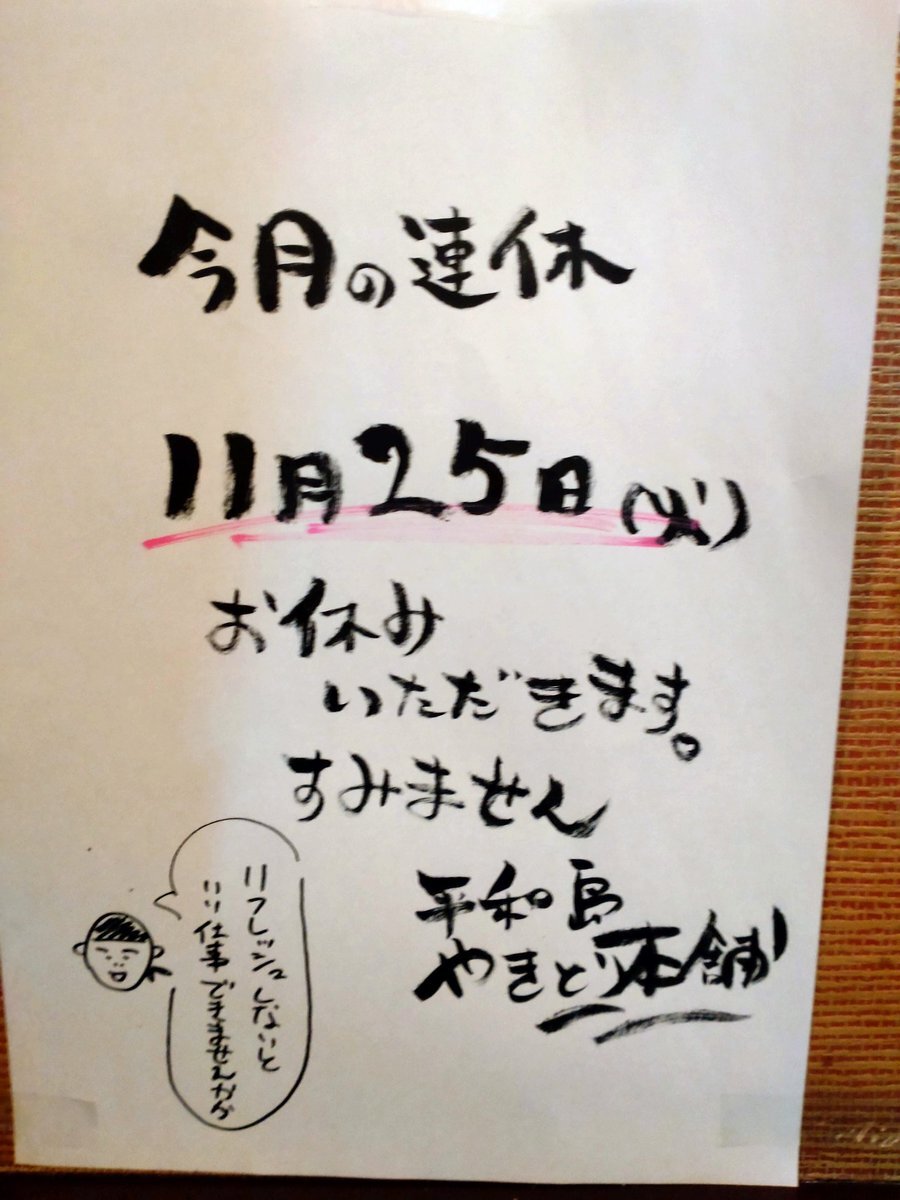 今月の連休
11月25日(火)
お休み
いただきます。
すみません
平和島
やきとり本舗
リフレッシュしないと
いい仕事できませんから